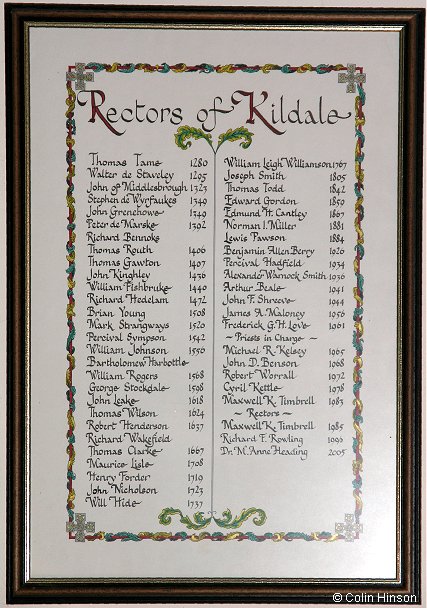 Rectors of Kildale
Thomas Tame 1280
Walter de Staveley 1295
John of Middlesbrough 1323
Stephen de Wyrfaukes 1349
John Grenehowe 1349
Peter de Marske 1392
Richard Bennoks
Thomas Routh 1406
Thomas Gawton 1407
John Kinghley 1436
William Fishbruke 1440
Richard Hedelam 1472
Brian Young 1508
Mark Strangways 1520
Percival Sympson 1542
William Johnson 1556
Bartholomew Harbottle
William Rogers 1568
George Stockdale 1598
John Leake 1618
Thomas Wilson 1624
Robert Henderson 1637
Richard Wakefield
Thomas Clarke 1667
Maurice Lisle 1708
Henry Forder 1719
John Nicholson 1723
Will Hide 1737
William Leigh Williamson 1767
Joseph Smith 1805
Thomas Todd 1842
Edward Gordon 1850
Edmund H. Cantley 1867
Norman I. Miller 1881
Lewis Pawson 1884
Benjamin Allen Berry 1926
Percival Hadfield 1934
Alexander Warnock Smith 1936
Arthur Beale 1941
John F. Shreeve 1944
James A. Maloney 1956
Frederick G. H. Love 1961
~ Priests in Charge ~
Michael R. Kelsey 1965
John D. Benson 1968
Robert Worrall 1972
Cyril Kettle 1978
Maxwell K. Timbrell 1983
~ Rectors ~
Maxwell K. Timbrell 1985
Richard F. Rowling 1999
Dr. M. Anne Heading 2005
© Colin Hinson